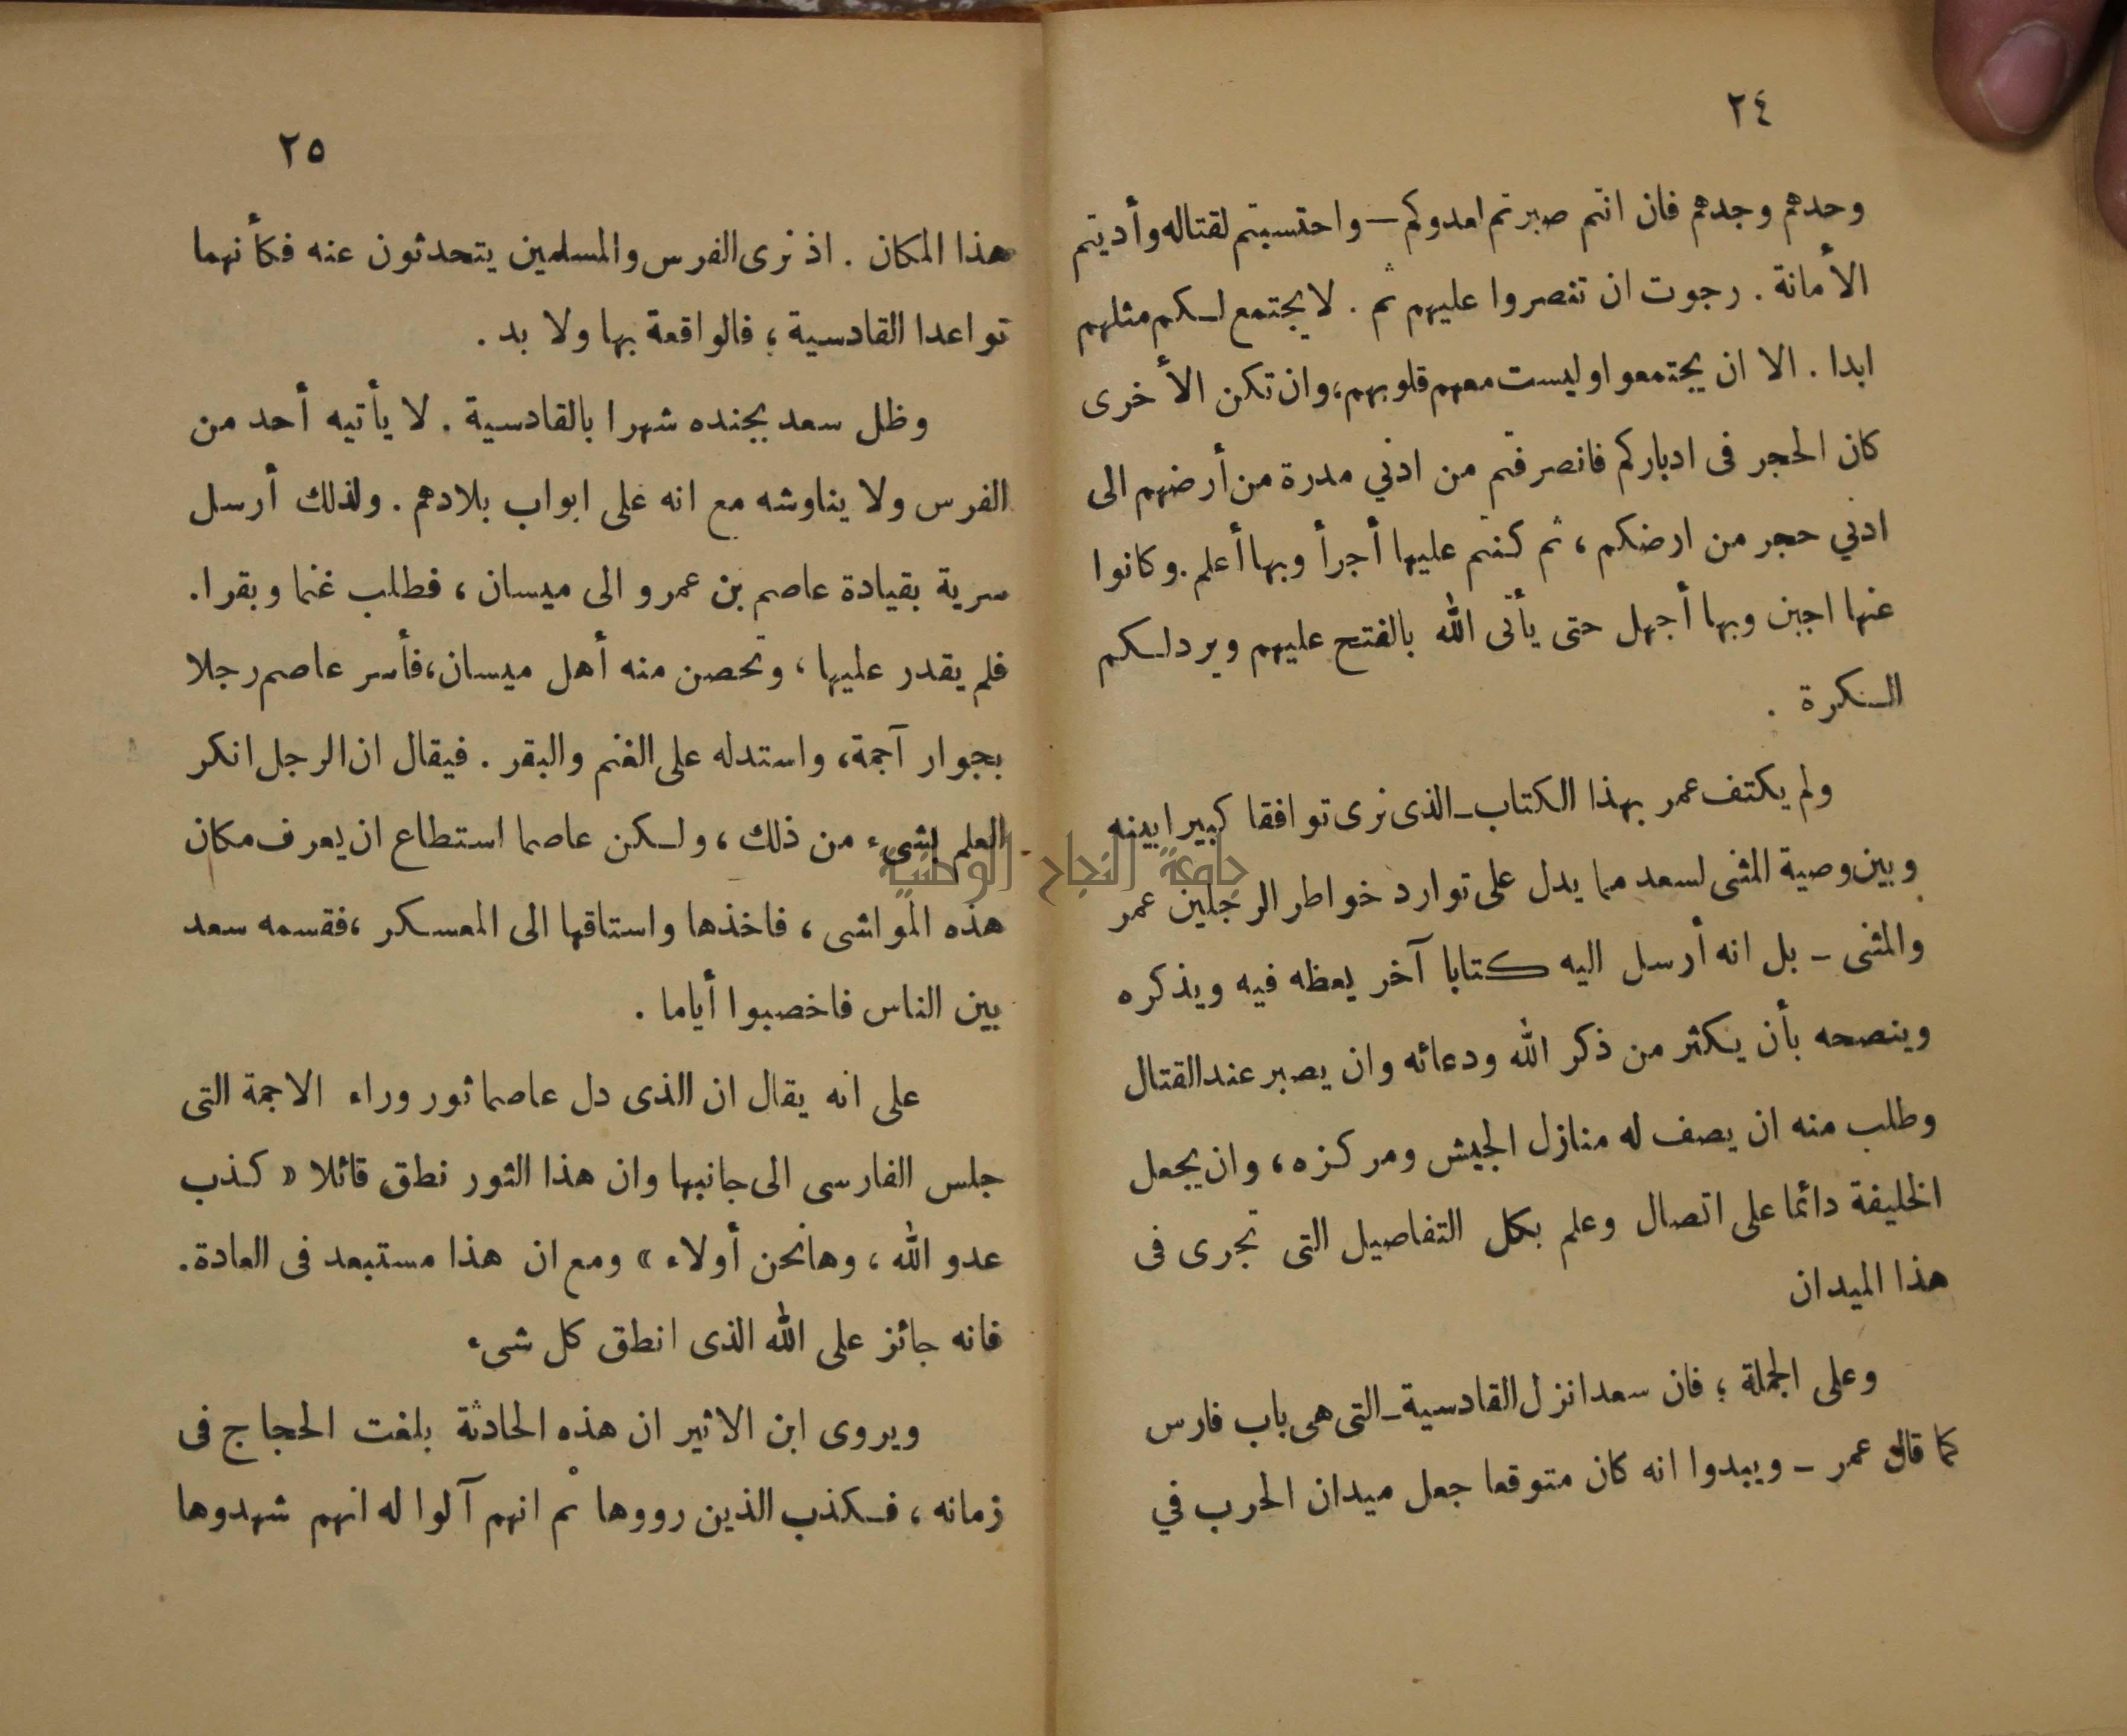 ٢٤
وحدهم وجدهم فان انتم صبرتم امدوكم — واحتسبتم لقتاله وأديتم
الأمانة . رجوت ان تنصروا عليهم ثم . لا يجتمع لكم مثلهم
ابدا . الا ان يجتمعوا وليست معهم قلوبهم، وان تكن الأخرى
كان الحجر فى ادباركم فانصرفتم من ادني مدرة من أرضهم الى
ادني حجر من ارضكم ، ثم كنتم عليها أجرأ وبها أعلم. وكانوا
عنها اجبن وبها أجهل حتى يأتى الله بالفتح عليهم ويرد لكم
الكرة .
ولم يكتف عمر بهذا الكتاب ـ الذى نرى توافقا كبيرا بينه
وبين وصية المثنى لسعد مما يدل على توارد خواطر الرجلين عمر
والمثنى ـ بل انه أرسل اليه كتابا آخر يعظه فيه ويذكره
وينصحه بأن يكثر من ذكر الله ودعائه وان يصبر عند القتال
وطلب منه ان يصف له منازل الجيش ومركزه، وان يجعل
الخليفة دائما على اتصال وعلم بكل التفاصيل التى تجرى فى
هذا الميدان
وعلى الجملة ؛ فان سعدا نزل القادسية ـ التى هى باب فارس
كما قال عمر ـ ويبدوا انه كان متوقعا جعل ميدان الحرب في
٢٥
هذا المكان . اذ نرى الفرس والمسلمين يتحدثون عنه فكأنهما
تواعدا القادسية ؛ فالواقعة بها ولا بد .
وظل سعد بجنده شهرا بالقادسية . لا يأتيه أحد من
الفرس ولا يناوشه مع انه على ابواب بلادهم . ولذلك أرسل
سرية بقيادة عاصم بن عمرو الى ميسان ، فطلب غنما وبقرا .
فلم يقدر عليها ، وتحصن منه أهل ميسان، فأسر عاصم رجلا
بجوار آجمة، واستدله على الغنم والبقر . فيقال ان الرجل انكر
العلم بشىء من ذلك ، ولكن عاصما استطاع ان يعرف مكان
هذه المواشى ، فاخذها واستاقها الى المعسكر ، فقسمه سعد
بين الناس فاخصبوا أياما .
على انه يقال ان الذى دل عاصما ثور وراء الاجمة التى
جلس الفارسى الى جانبها وان هذا الثور نطق قائلا « كذب
عدو الله ، وهانحن أولاء » ومع ان هذا مستبعد فى العادة .
فانه جائز على الله الذى انطق كل شىء
ويروى ابن الاثير ان هذه الحادثة بلغت الحجاج فى
زمانه ، فكذب الذين رووها ثم انهم آلوا له انهم شهدوها
جامعة النجاح الوطنية